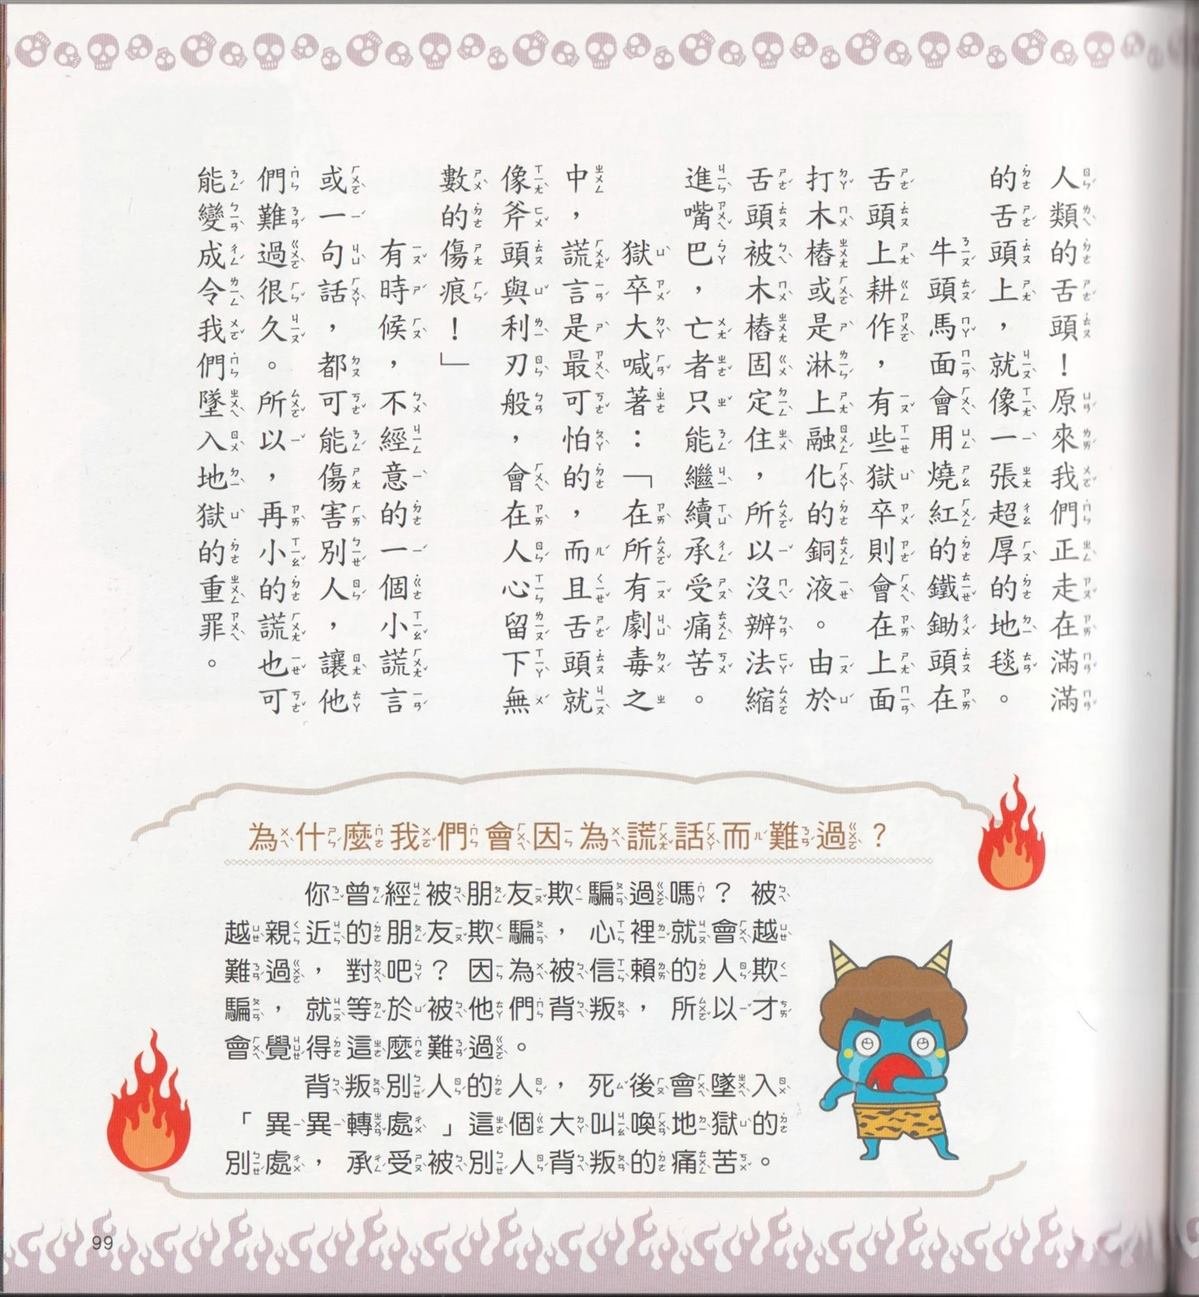 人類的舌頭！原來我們正走在滿滿
的舌頭上，就像一張超厚的地毯。
牛頭馬面會用燒紅的鐵鋤頭在
舌頭上耕作，有些獄卒則會在上面
打木樁或是淋上融化的銅液。由於
舌頭被木樁固定住，所以沒辦法縮
進嘴巴，亡者只能繼續承受痛苦。
獄卒大喊著：「在所有劇毒之
中，謊言是最可怕的，而且舌頭就
像斧頭與利刃般，會在人心留下無
數的傷痕！」
有時候，不經意的一個小謊言
或一句話，都可能傷害別人，讓他
們難過很久。所以，再小的謊也可
能變成令我們墜入地獄的重罪。
為什麼我們會因為謊話而難過？
你曾經被朋友欺騙過嗎？被
越親近的朋友欺騙，心裡就會越
難過，對吧？因為被信賴的人欺
騙，就等於被他們背叛，所以才
會覺得這麼難過。
背叛別人的人，死後會墜入
「異異轉處」這個大叫喚地獄的
別處，承受被別人背叛的痛苦。
99